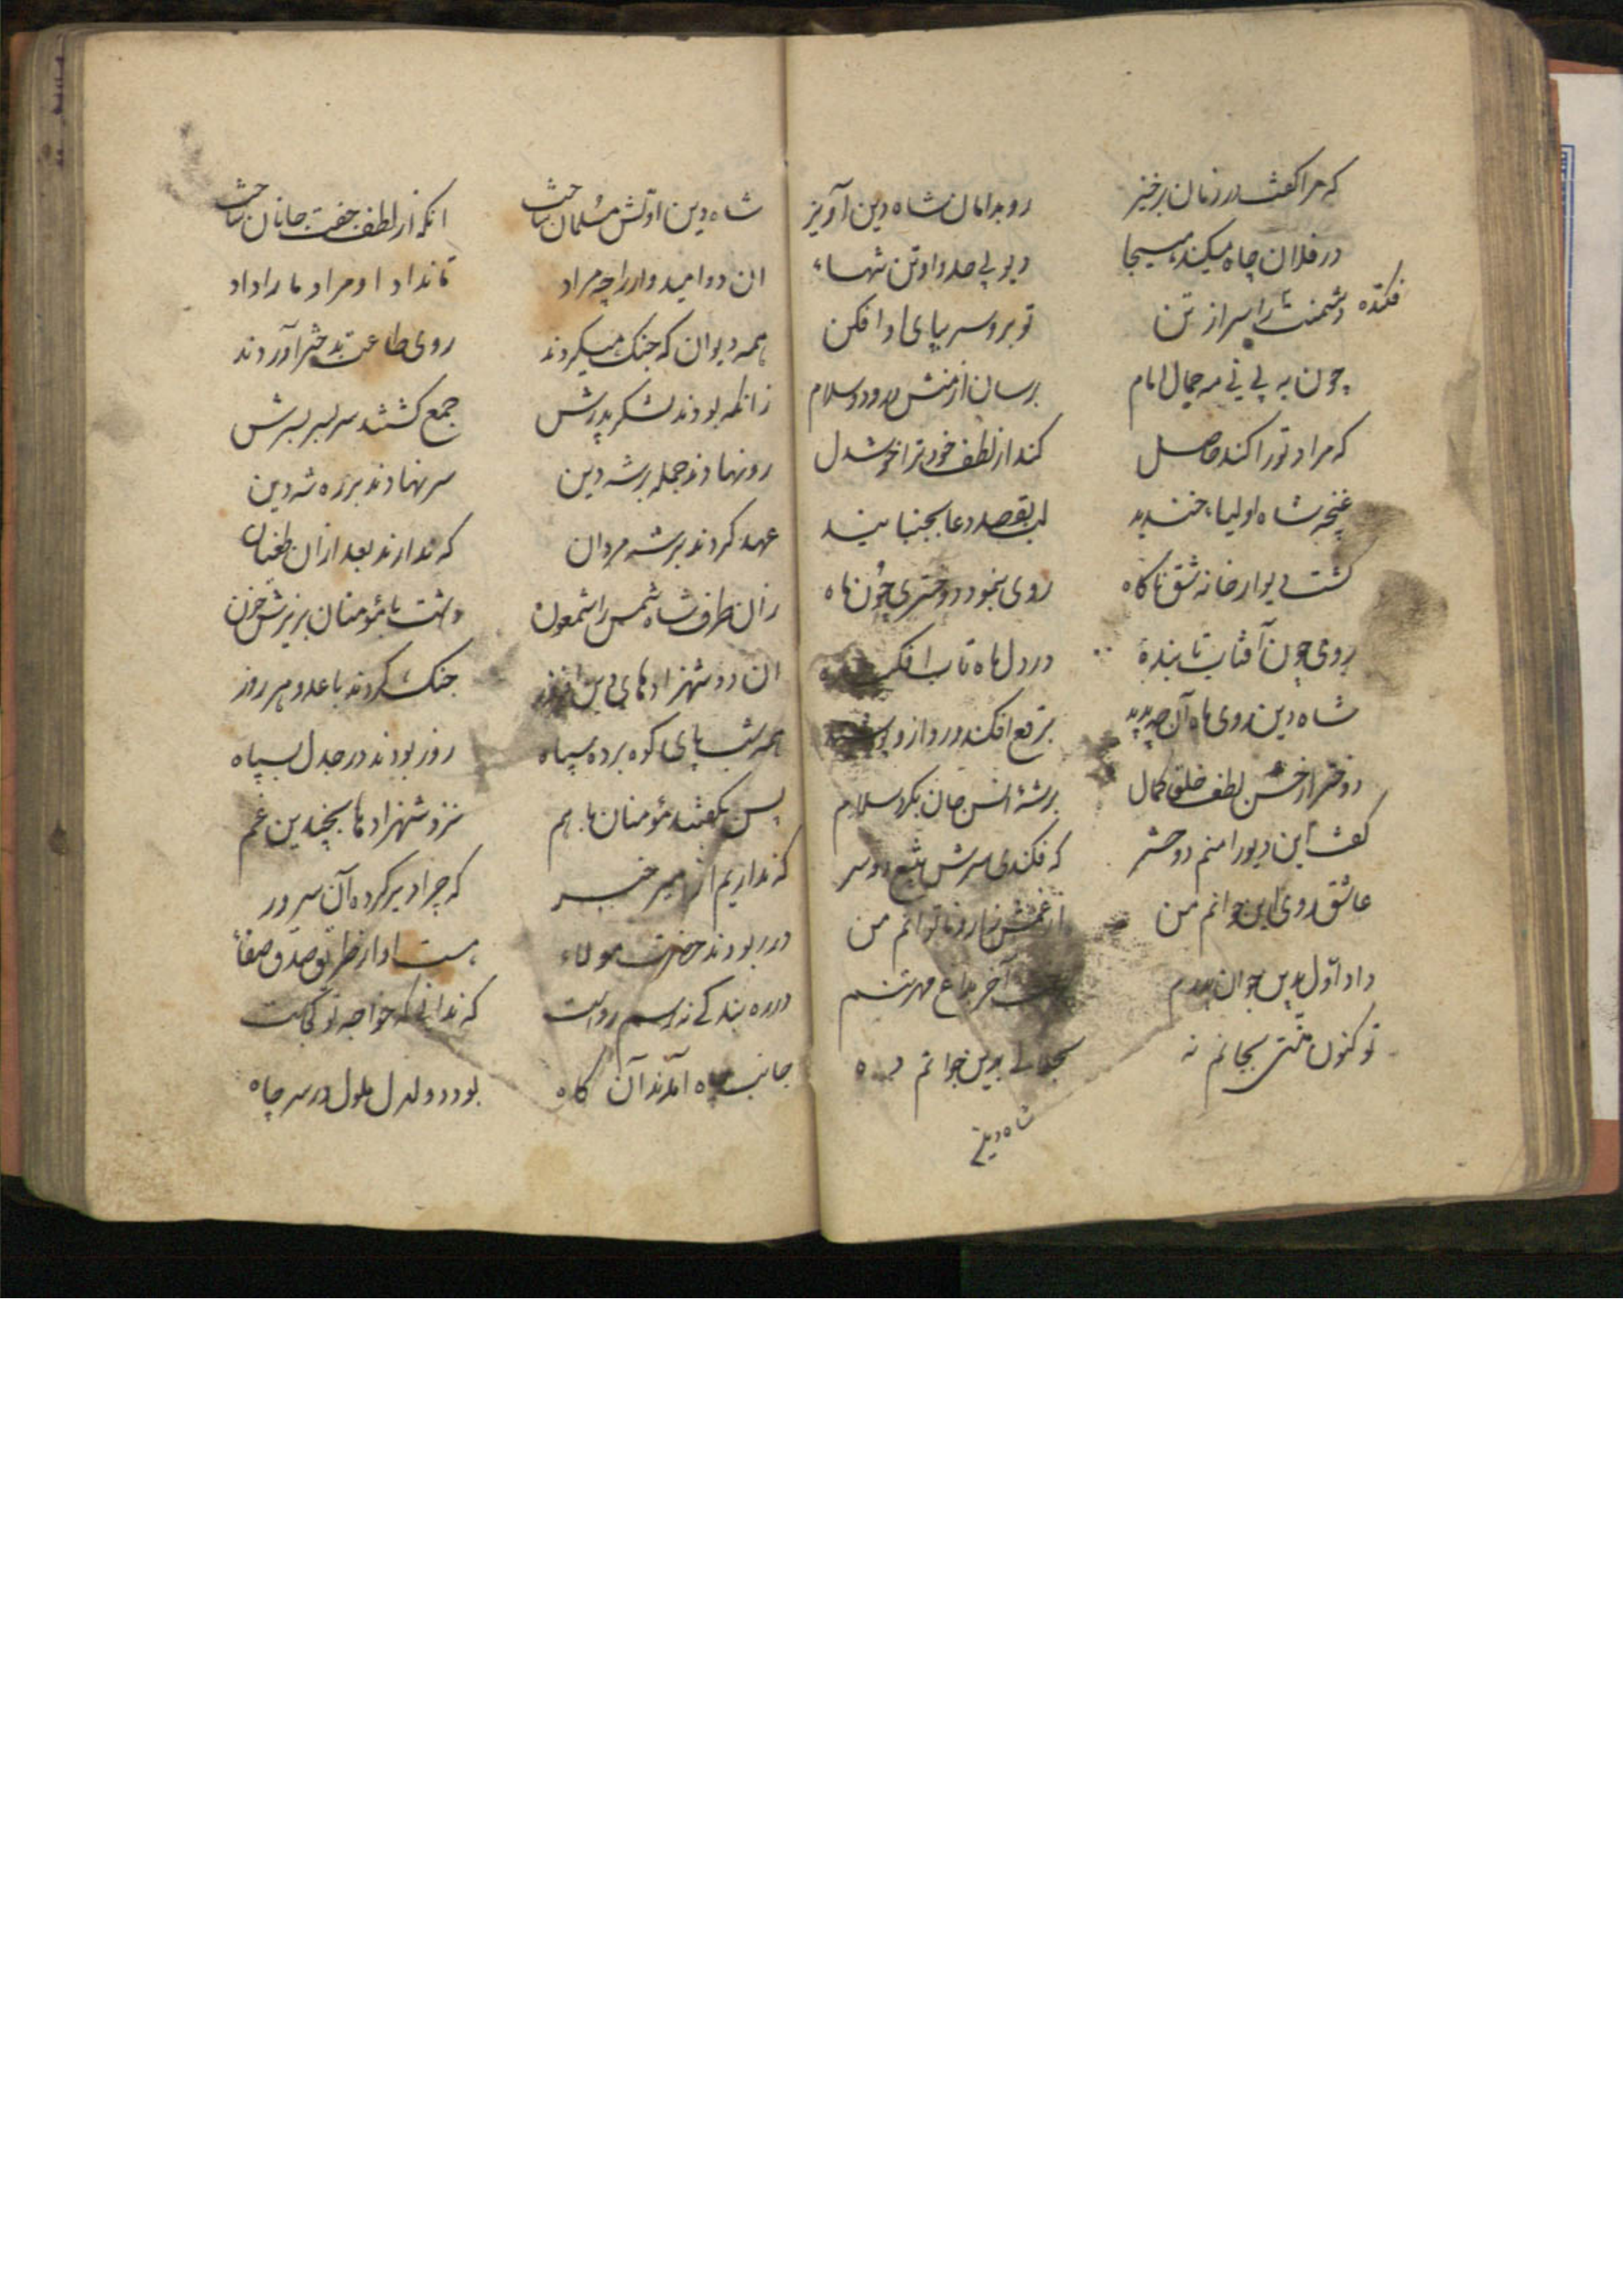 که مرا گفت در زمان برخیز رو بدامان شاه دین آویز
در فلان چاه میکند هیجا دیو بی حد و او تن تنها
فکنده دشمنت را سر از تن تو برو سر بپای او افکن
چون به بینی مه جمال امام برسان از منش درود و سلام
که مراد تو را کند حاصل کند از لطف خود ترا خوشدل
غنچه شاه اولیا خندید لب بقصد دعا بجنبانید
گشت دیوار خانه شق ناگاه روی بنمود دختری چون ماه
روی چون آفتاب تابنده در دل ماه تاب افکنده
شاه دین روی ماه آن چو بدید برقع افکند در دراز و
دختر از حسن لطف خلق کمال بر شه انس جان بکرد سلام
گفت این دیو را منم دختر که فکندی سرش بتیغ دو سر
عاشق روی این جوانم من از غمش زار و ناتوانم من
داد اول بدین جوان پدرم آخر
تو کنون منتی بجانم نه بدین جوانم ده
شاه دین
شاه دین او تنش مسلمان ساخت انکه از لطف جفت جانان ساخت
ان دو امیدوار را چه مراد تا نداد او مراد ما را داد
همه دیوان که جنک میکردند روی طاعت بدخت آوردند
زانکه بودند لشکر پدرش جمع گشتند سر بسر بسرش
رو نهادند جمله بر شه دین سر نهادند بر ره شه دین
عهد کردند بر شه مردان که ندارند بعد ازان طغیان
زان طرف شاه شمس را شمعون داشت با مؤمنان بریزش خون
ان دو شهزادهای دین جنک کردند با عدو هر روز
همه شب پای کوه برده سپاه روز بودند در جدل بسپاه
پس بگفتند مؤمنان با هم نزد شهزادها بچندین غم
که نداریم از امیر خبر که چرا دیر کرده آن سرور
در بر بودند حضرت مولاء هست او از طریق صدق صفا
در ره بندگی نه رسم رواست که ندانی که خواجه تو کجاست
جانب چاه آمدند آن گاه بود دلدل ملول در سر چاه